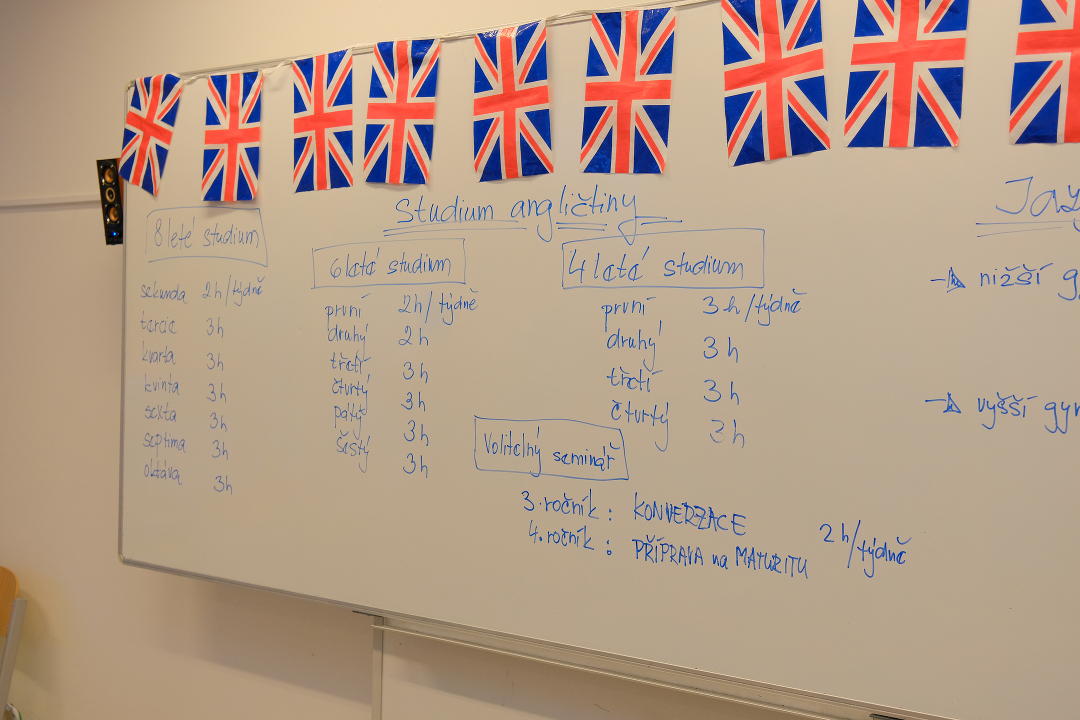 Studium angličtiny
8 leté studium
sekunda 2h/týdně
tercie 3h
kvarta 3h
kvinta 3h
sexta 3h
septima 3h
oktáva 3h
6 letá studium
první 2h/týdně
druhý 2h
třetí 3h
čtvrtý 3h
pátý 3h
šestý 3h
4 letá studium
první 3h/týdně
druhý 3h
třetí 3h
čtvrtý 3h
Volitelný seminář
3. ročník: KONVERZACE
4. ročník: PŘÍPRAVA na MATURITU
2h/týdně
nižší
vyšší